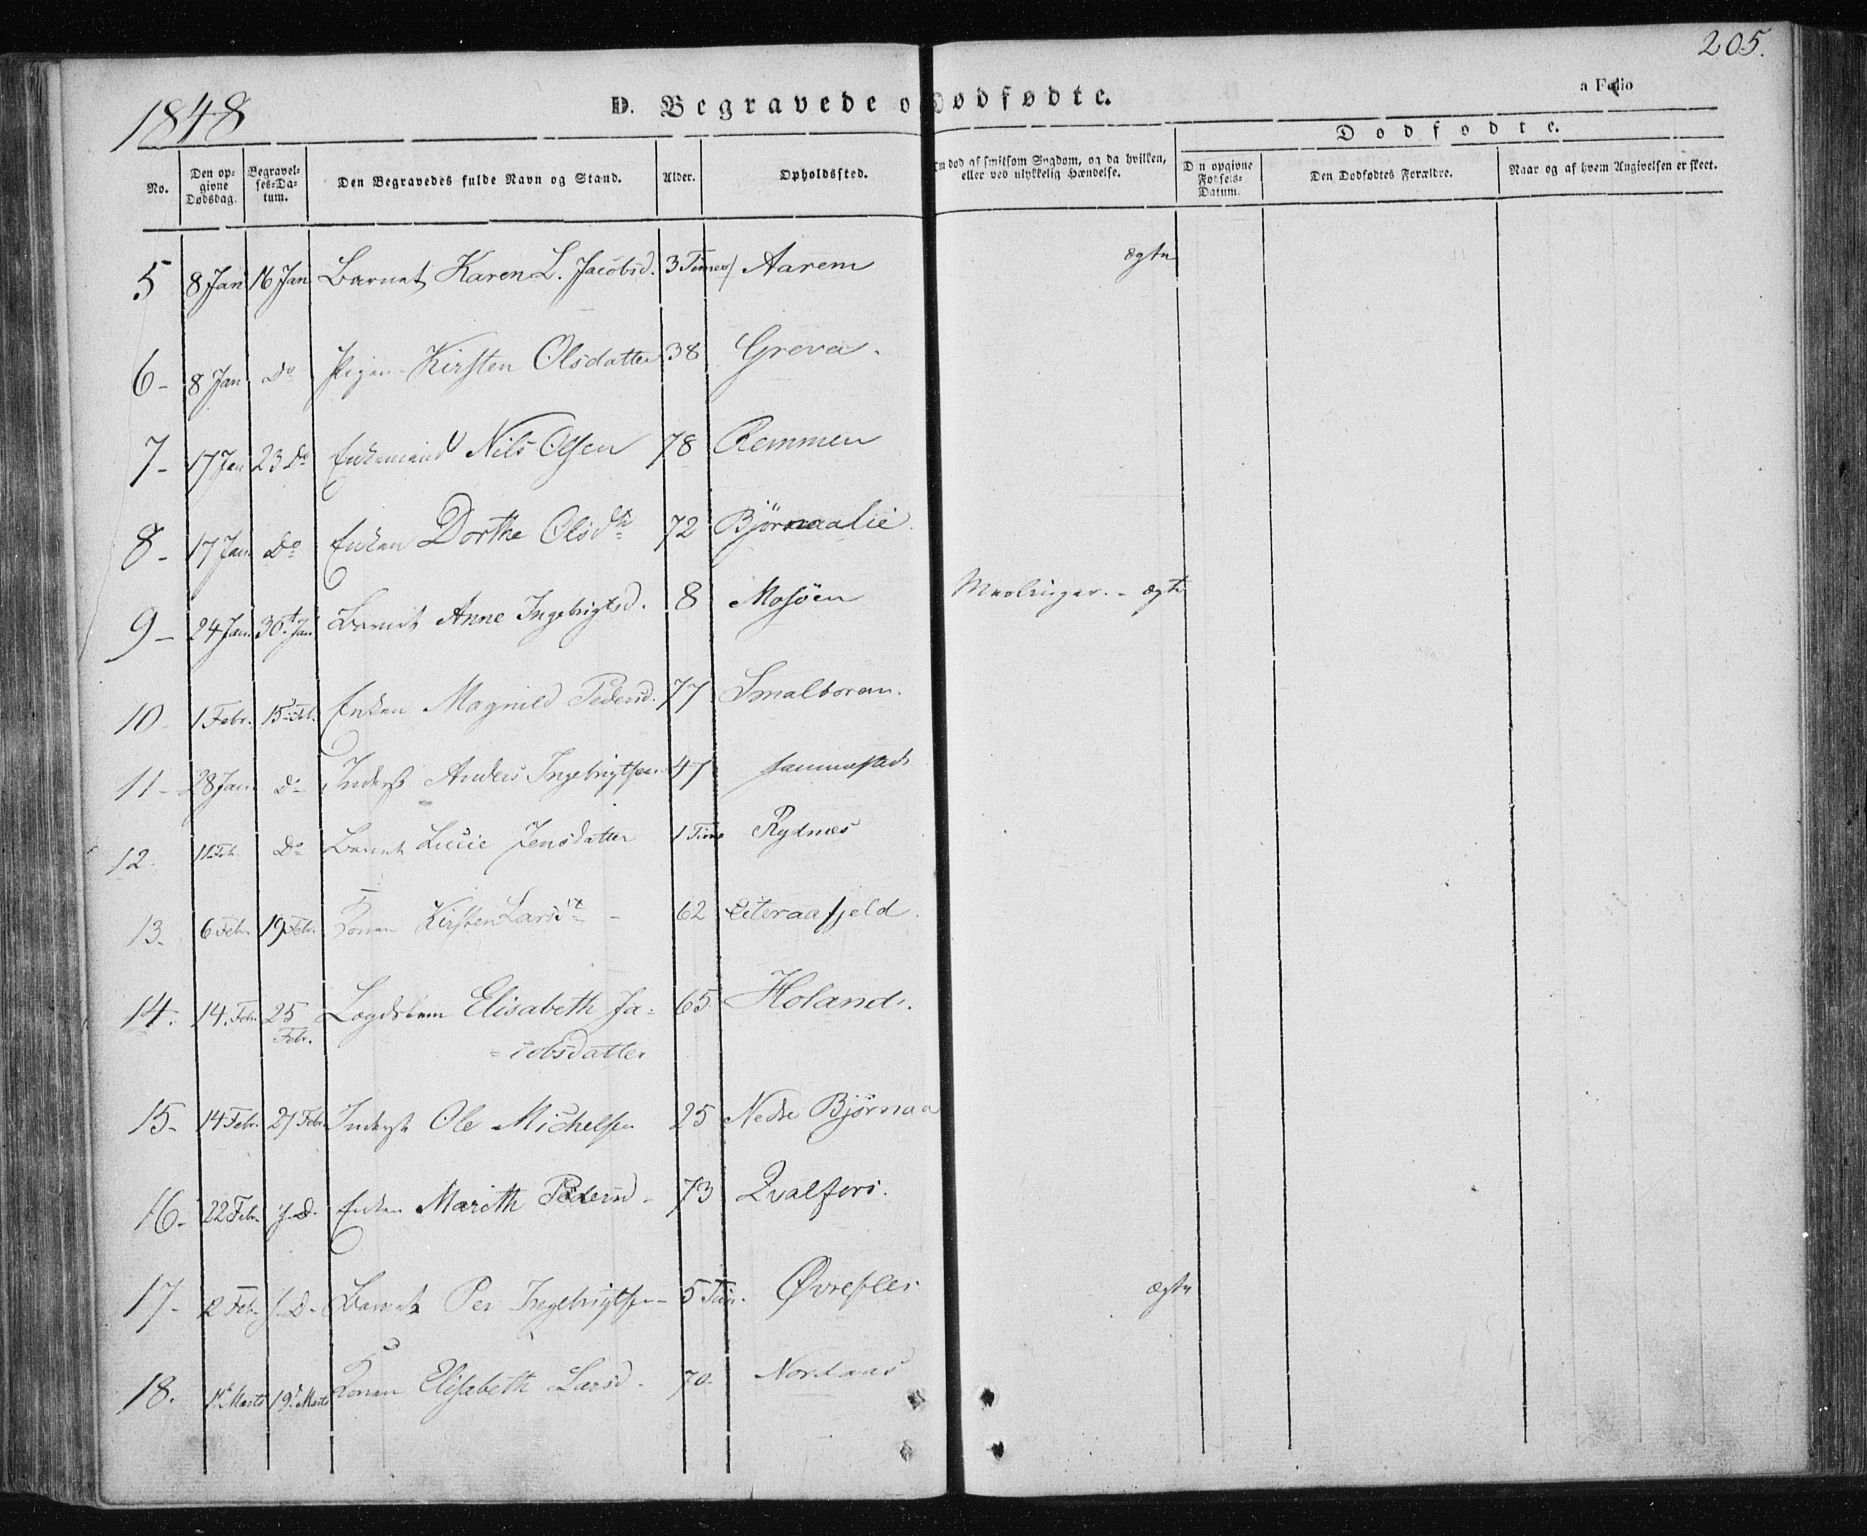 205.
1848
D. Begravede o Dødfødte.
a Folio
Dødfødte.
No. Den opgivne Dødsdag. Begravelses-Datum. Den Begravedes fulde Navn og Stand. Alder. Opholdssted. Om død af smitsom Sygdom, og da hvilken, eller ved ulykkelig Hændelse. D n opgivne Fødsels-Datum. Den Dødfødtes Forældre. Naar og af hvem Angivelsen er skeet.
5 8 Jan 16 Jan Barnet Karen L. Jacobsd. 3 Timer Aarem ægte
6- 8 Jan Do Pigen Kirsten Olsdatter 38 Greva.
7- 17 Jan 23 Do Enkemand Nils Olsen 78 Remmen
8- 17 Jan Do Enken Dorthe Olsdtr 72 Bjørnaalie.
9- 24 Jan 30t Jan Barnet Anne Ingebrigtsd. 8 Mosöen Meslinger. - ægte
10- 1 Febr. 15 Feb. Enken Magnild Pedersd. 77 Smalboren.
11- 28 Jan. Do Inderst Anders Ingebrigtsen 47
12. 11 Feb. Do Barnet Lucie Jensdatter 1 Time Rydnes
13. 6 Febr. 19 Febr. Konen Kirsten Larsdt - 62 Eiteraafjeld.
14. 14. Febr. 25 Febr. Lægdslem Elisabeth Ja= 65 Holand.
=cobsdatter
15- 14 Febr. 27 Febr Inderst Ole Michelsen 25 Nedre Bjørnaa
16- 22 Febr. s. D. Enken Marith Pedersd - 73 Qvalfors.
17- 2 Feb. s. D. Barnet Per Ingebrigtsen - 5 Tim. Øvrefles ægte
18. 1t Marts 19d Marts Konen Elisabeth Larsd - 70. Nordaas